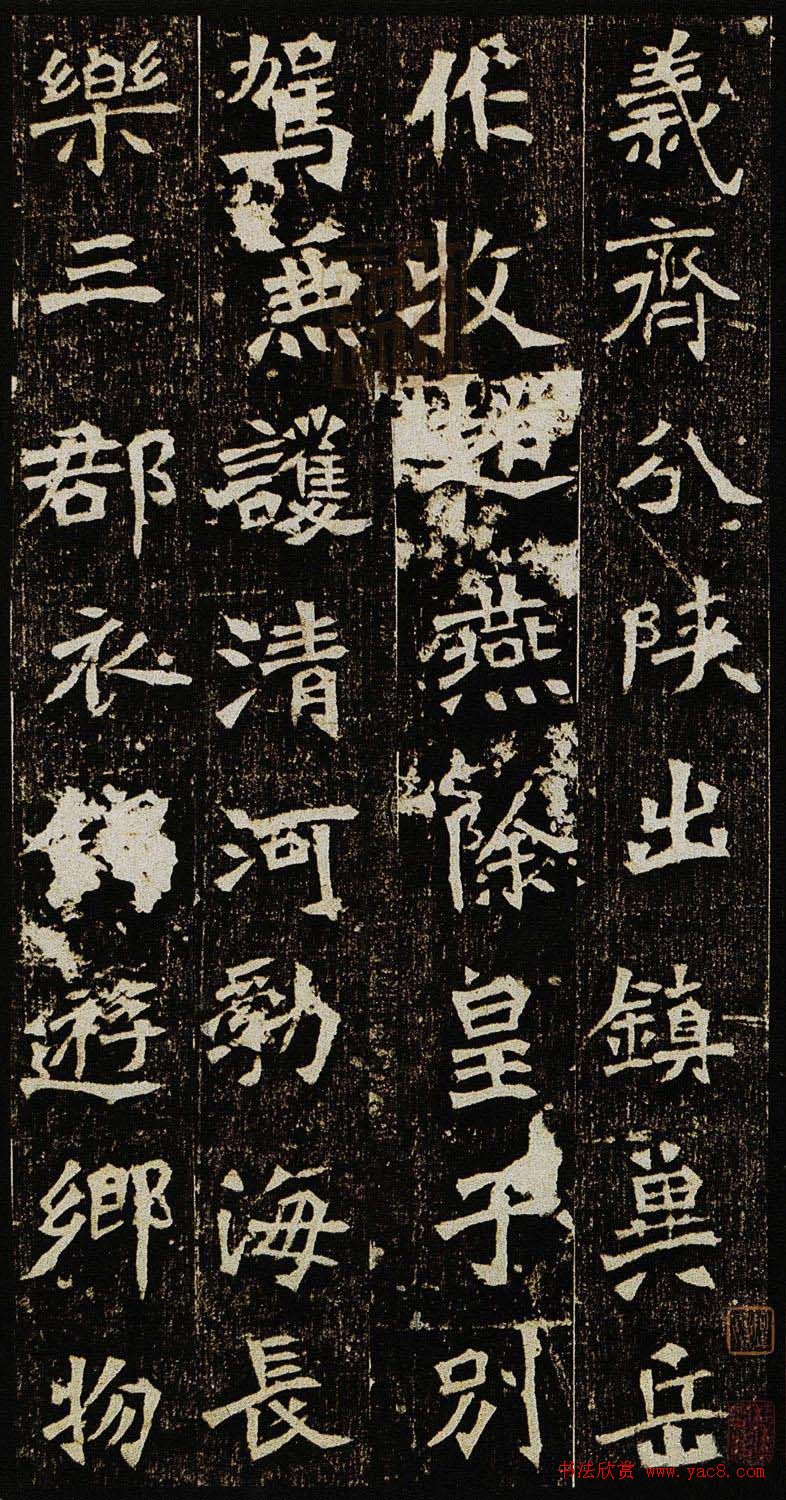 義齊分陝出鎮冀岳
作牧燕除皇子別
駕兼護清河勃海長
樂三郡衣錦遊鄉物
书法欣赏 www.yac8.com